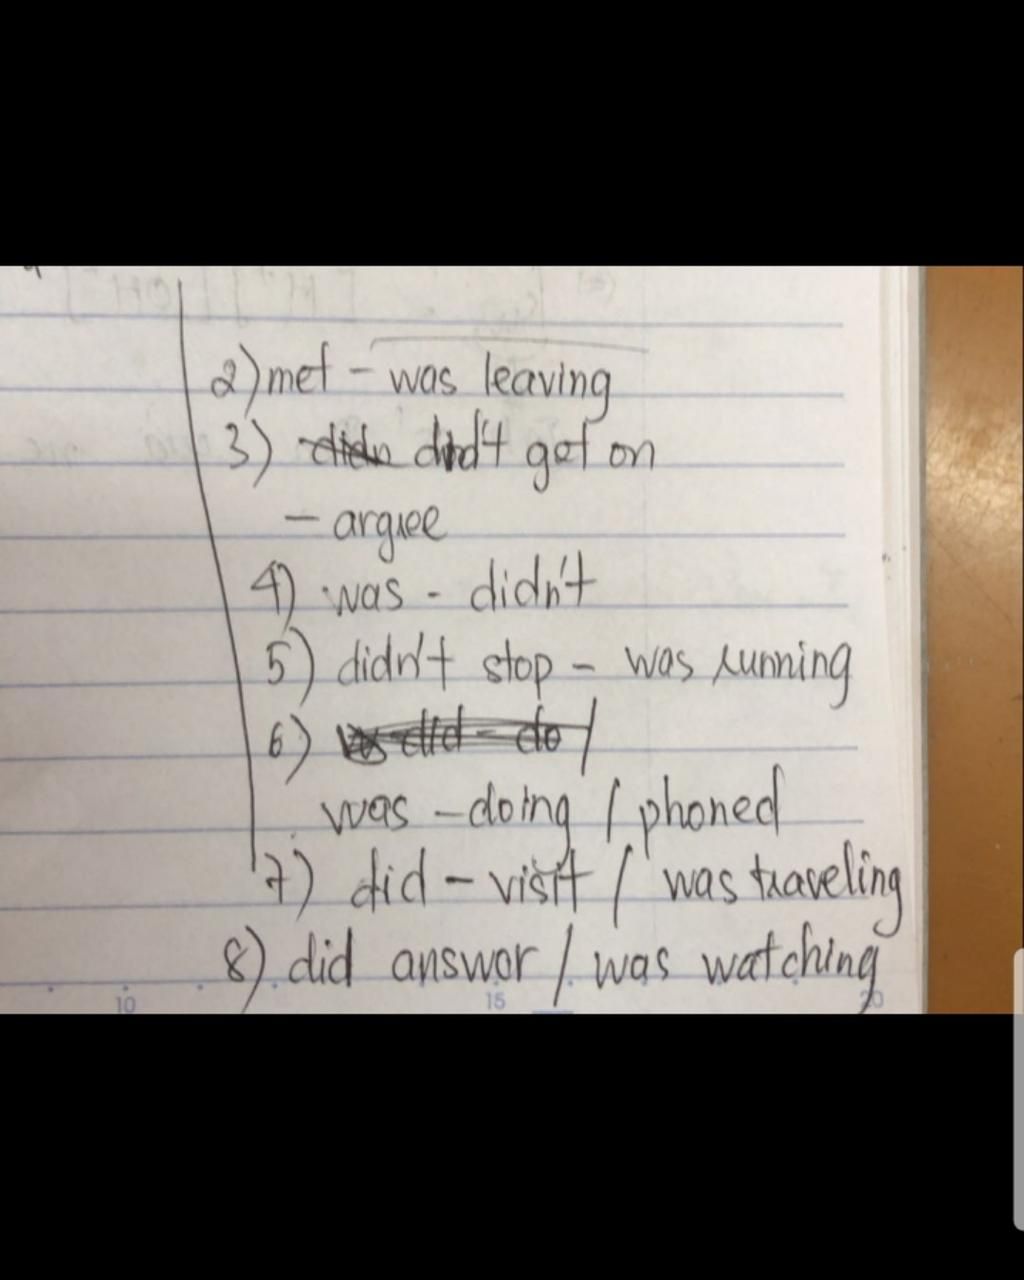 2) met - was leaving
3) didn't get on
- argiee
4) was - didn't
5) didn't stop - was running
6) did - do /
was - doing / phoned
7) did - visit / was traveling
8) did answor / was watching
10 15 20